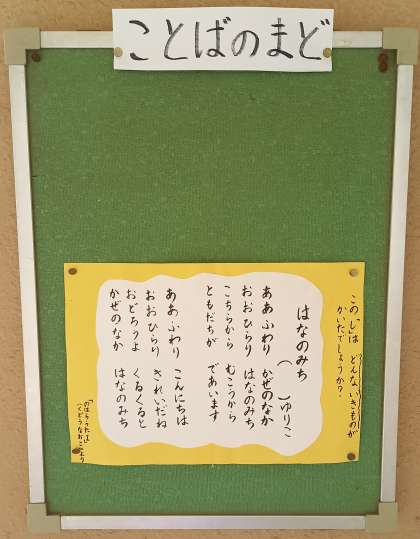 ことばのまど
この「し」は どんないきものが
かいたでしょうか?
はなのみち
( )ゆりこ
ああ ふわり かぜのなか
おお ひらり はなのみち
こちらから むこうから
ともだちが であいます
ああ ふわり こんにちは
おお ひらり きれいだね
おどろうよ くるくると
かぜのなか はなのみち
「のはらうた」
(くどうなおこ)より